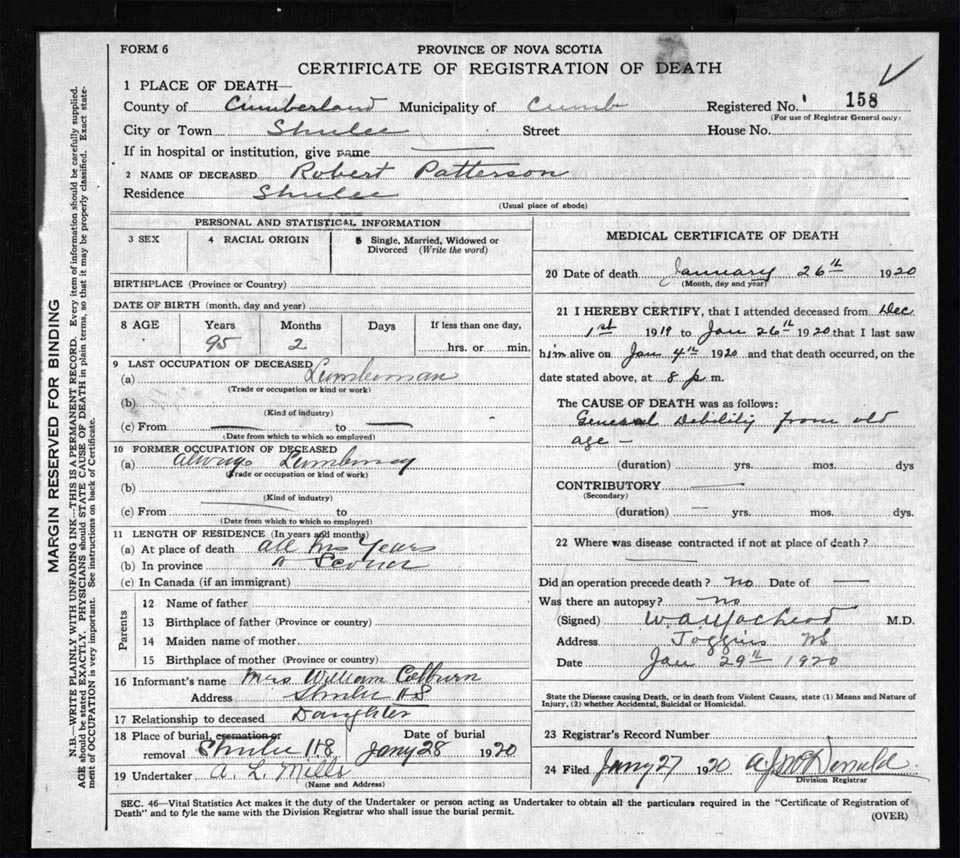 FORM 6
PROVINCE OF NOVA SCOTIA
CERTIFICATE OF REGISTRATION OF DEATH
1 PLACE OF DEATH—
County of Cumberland Municipality of Cumb Registered No. 158
(For use of Registrar General only)
City or Town Shulee Street House No.
If in hospital or institution, give name
2 NAME OF DECEASED Robert Patterson
Residence Shulee
(Usual place of abode)
MARGIN RESERVED FOR BINDING
N.B.—WRITE PLAINLY WITH UNFADING INK—THIS IS A PERMANENT RECORD. Every item of information should be carefully supplied.
AGE should be stated EXACTLY. PHYSICIANS should STATE CAUSE OF DEATH in plain terms, so that it may be properly classified. Exact state-
ment of OCCUPATION is very important. See instructions on back of Certificate.
PERSONAL AND STATISTICAL INFORMATION
3 SEX 4 RACIAL ORIGIN 5 Single, Married, Widowed or
Divorced (Write the word)
BIRTHPLACE (Province or Country)
DATE OF BIRTH (month, day and year)
8 AGE Years Months Days If less than one day,
95 2 hrs. or min.
9 LAST OCCUPATION OF DECEASED
(a) Lumberman
(Trade or occupation or kind or work)
(b)
(Kind of industry)
(c) From to
(Date from which to which so employed)
10 FORMER OCCUPATION OF DECEASED
(a) always
(Trade or occupation or kind of work)
(b)
(Kind of industry)
(c) From to
(Date from which to which so employed)
11 LENGTH OF RESIDENCE (In years and months)
(a) At place of death all his years
(b) In province
(c) In Canada (if an immigrant)
Parents
12 Name of father
13 Birthplace of father (Province or country)
14 Maiden name of mother
15 Birthplace of mother (Province or country)
16 Informant's name Mrs William Colburn
Address Shulee NS
17 Relationship to deceased Daughter
18 Place of burial, cremation or Date of burial
removal Shulee NS Jany 28 1920
19 Undertaker A. L. Mills
(Name and Address)
MEDICAL CERTIFICATE OF DEATH
20 Date of death January 26th 1920
(Month, day and year)
21 I HEREBY CERTIFY, that I attended deceased from Dec
1st 1919 to Jan 26th 1920 that I last saw
him alive on Jan 4th 1920 and that death occurred, on the
date stated above, at 8 p m.
The CAUSE OF DEATH was as follows:
General Debility from old
age —
(duration) yrs. mos. dys
CONTRIBUTORY
(Secondary)
(duration) — yrs. mos. dys.
22 Where was disease contracted if not at place of death?
Did an operation precede death? No Date of —
Was there an autopsy? no
(Signed) M.D.
Address Joggins NS
Date Jan 29th 1920
State the Disease causing Death, or in death from Violent Causes, state (1) Means and Nature of
Injury, (2) whether Accidental, Suicidal or Homicidal.
23 Registrar's Record Number
24 Filed Jany 27 1920 A J McDonald
Division Registrar
SEC. 46—Vital Statistics Act makes it the duty of the Undertaker or person acting as Undertaker to obtain all the particulars required in the "Certificate of Registration of
Death" and to fyle the same with the Division Registrar who shall issue the burial permit.
(OVER)